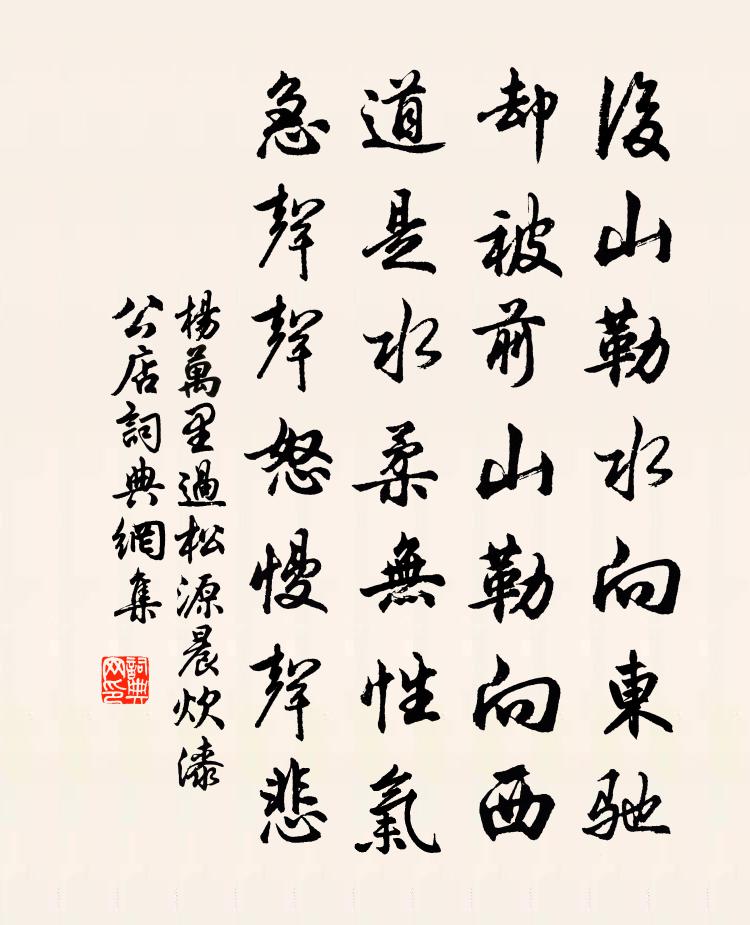 後山勒水向東馳
却被前山勒向西
道是水柔無性氣
急聲聲怒慢聲悲
楊萬里過松源晨炊漆
公店詞典網集
詞典
网